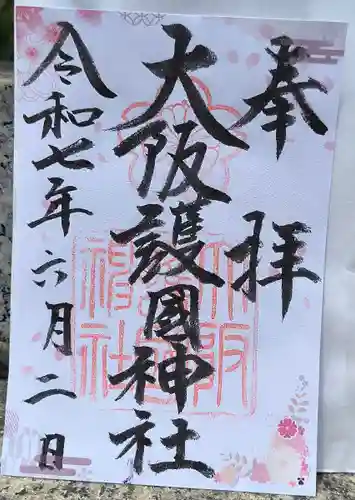 奉拝
大阪護國神社
令和七年六月二日